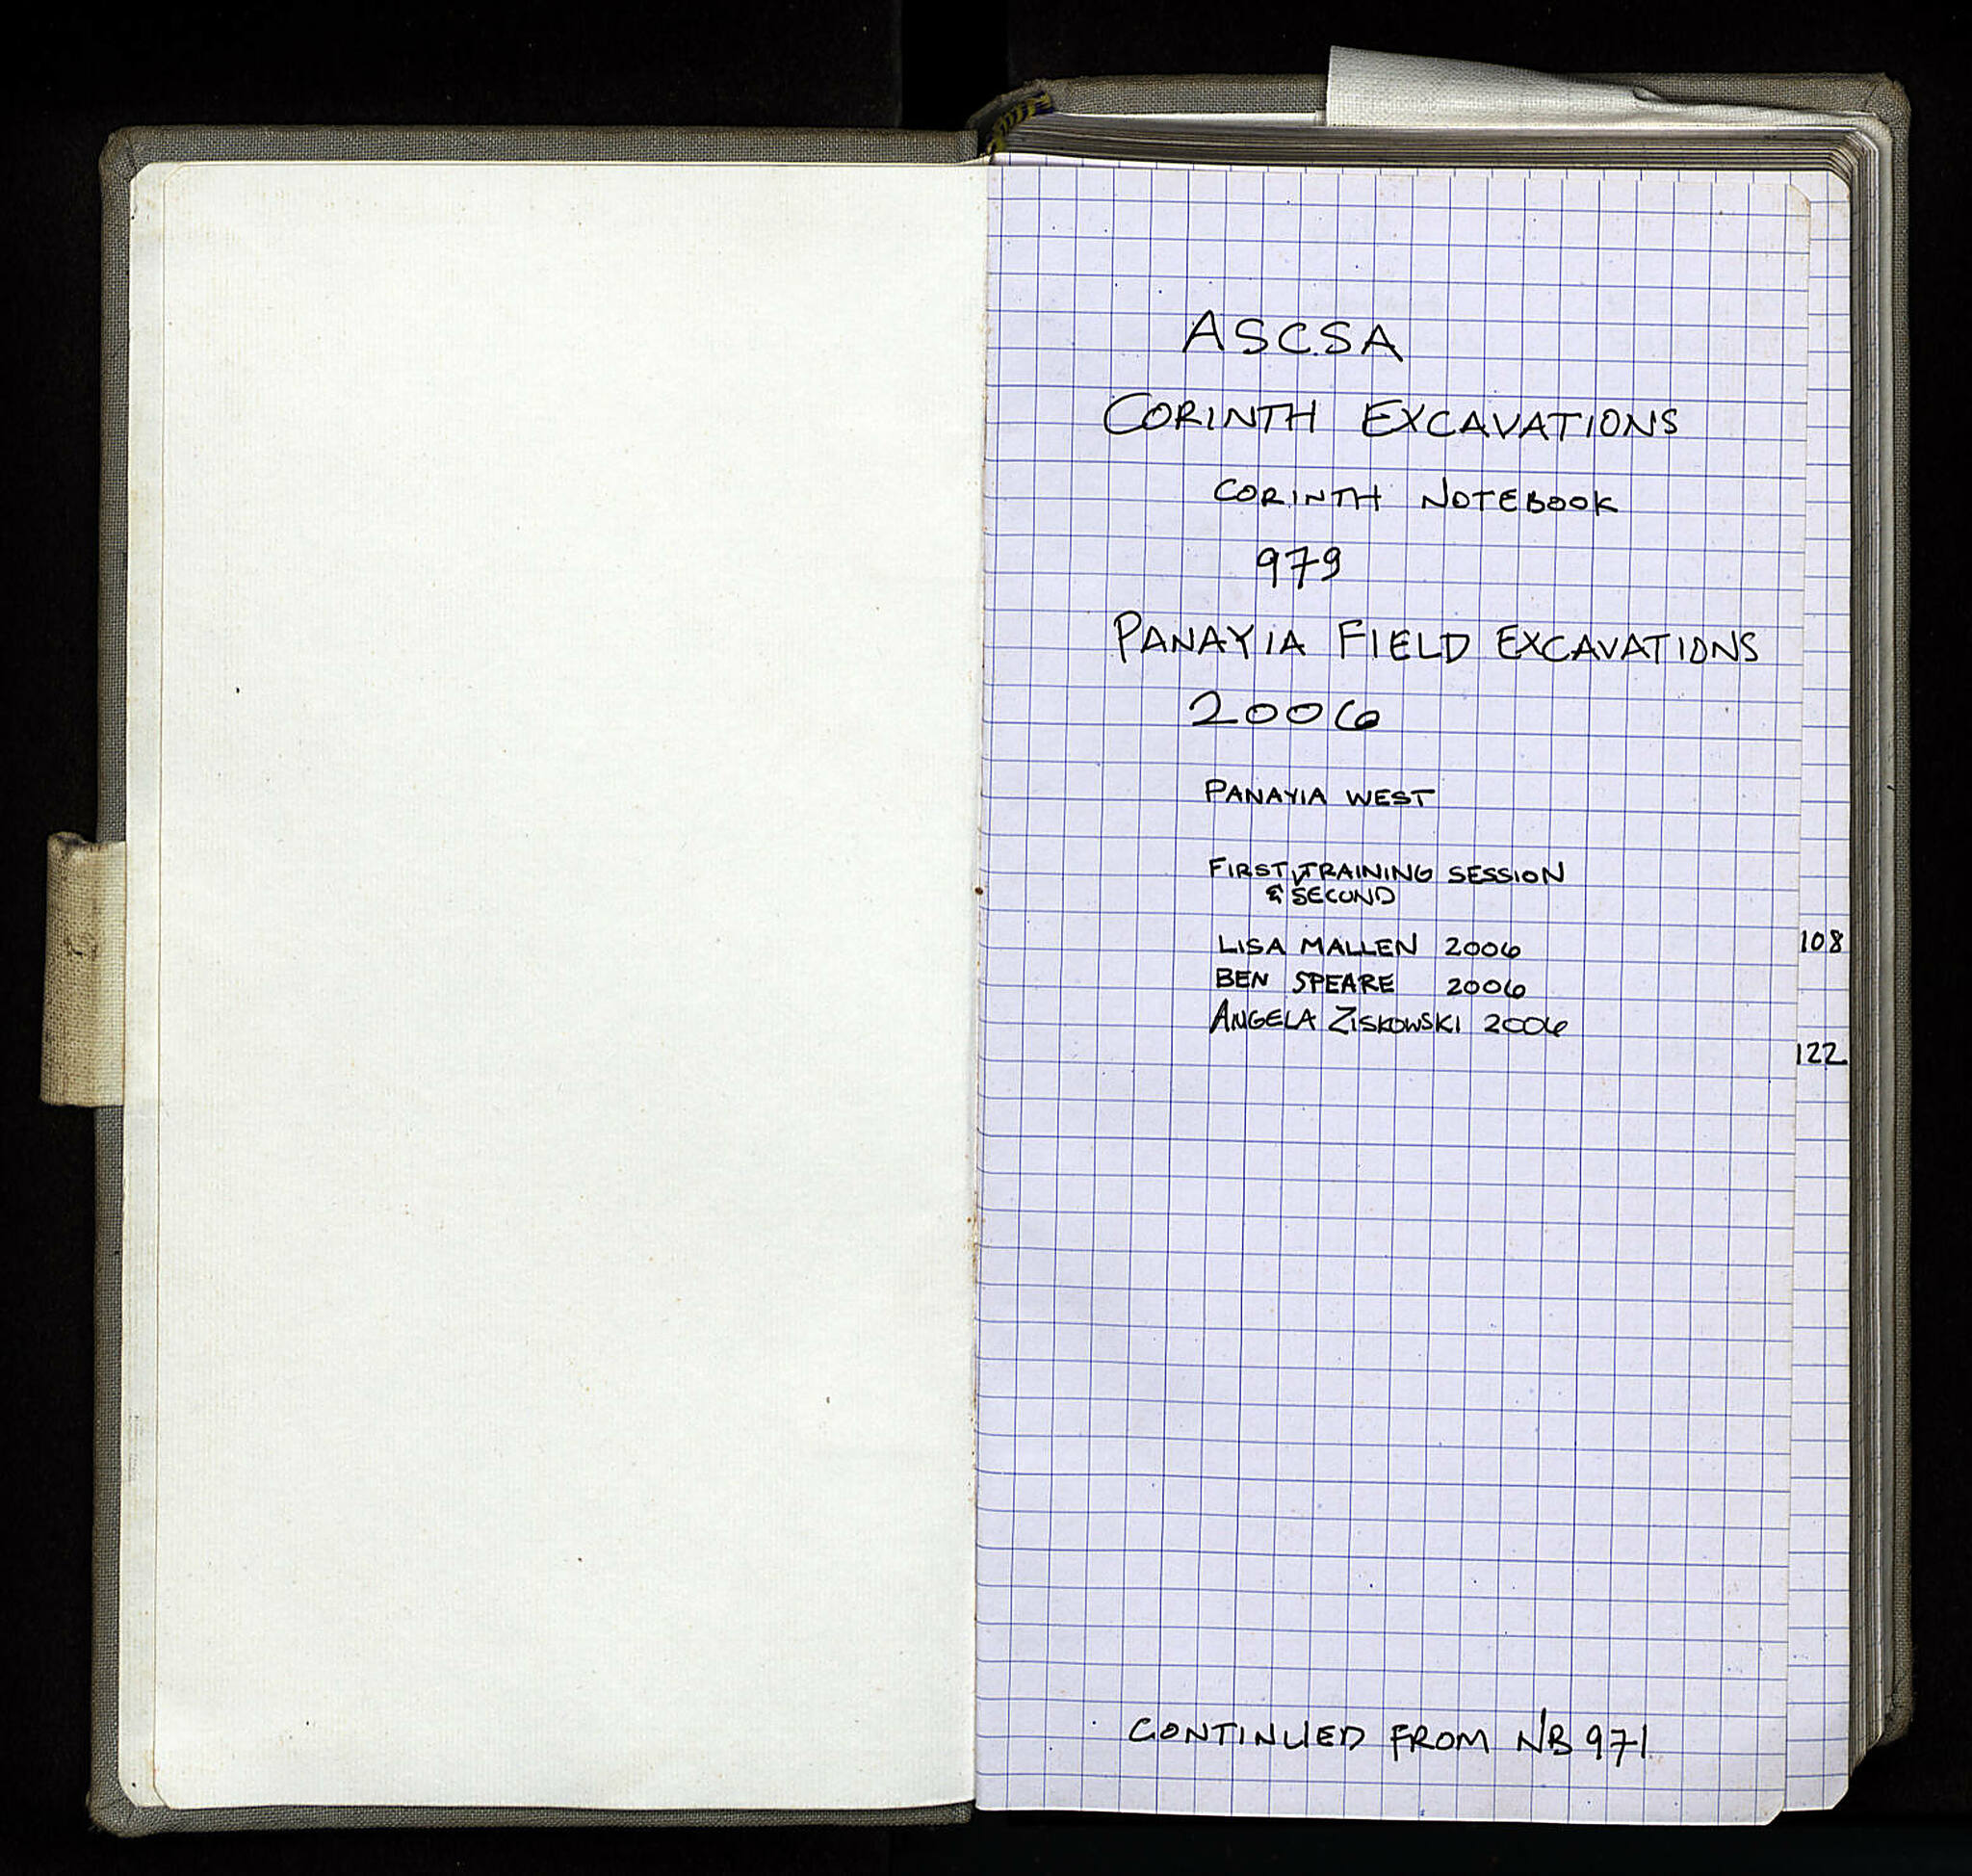 ASCSA
CORINTH EXCAVATIONS
CORINTH NOTEBOOK
979
PANAYIA FIELD EXCAVATIONS
2006
PANAYIA WEST
FIRST TRAINING SESSION
& SECOND
LISA MALLEN 2006
BEN SPEARE 2006
ANGELA ZISKOWSKI 2006
108
122
CONTINUED FROM NB 971